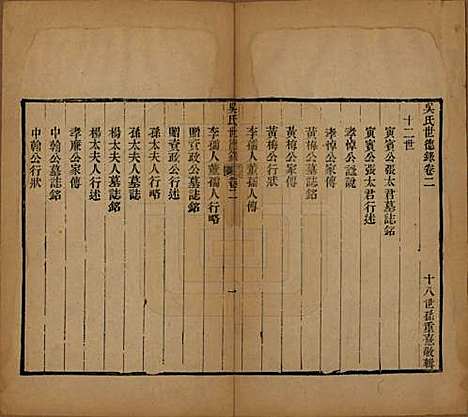 吳氏世德錄卷二
十八世孫重憙敬輯
十二世
寅賓公張太君墓誌銘
寅賓公張太君行述
孝悼公誼說
孝悼公家傳
黃梅公墓誌銘
黃梅公家傳
黃梅公行狀
李孺人董孺人傳
吳氏世德錄 卷二 一
李孺人董孺人行略
贈資政公墓誌銘
贈資政公行述
孫太夫人行述
孫太夫人墓誌銘
楊太夫人墓誌銘
楊太夫人行述
孝廉公家傳
中翰公墓誌銘
中翰公行狀